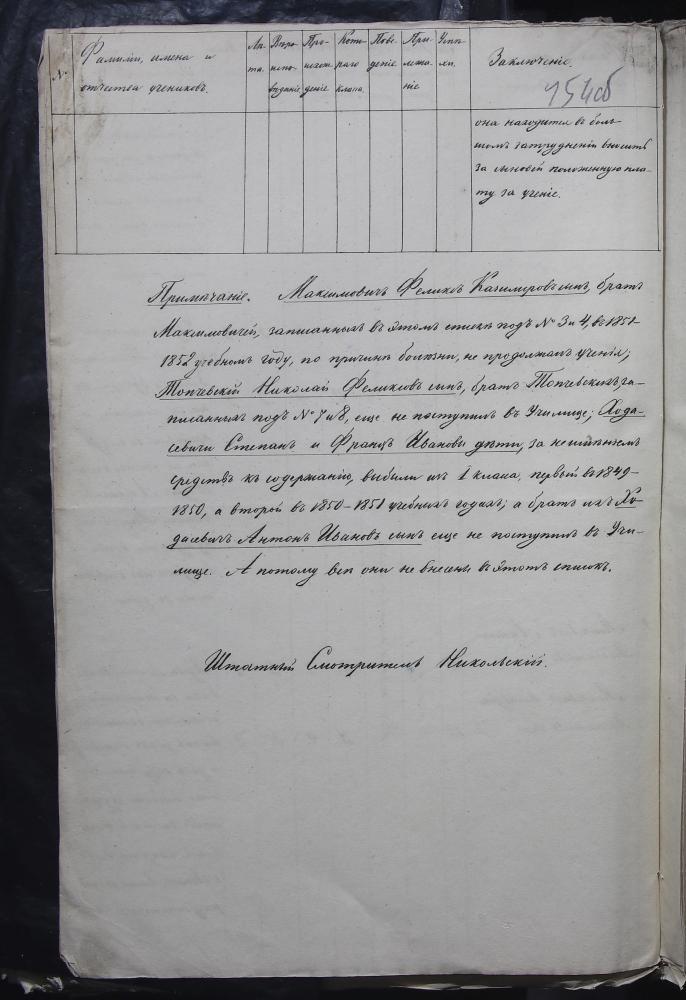 №
Фамиліи, имена и
отчества учениковъ.
Лѣ-
та.
Вѣро-
испо-
вѣданіе
Про-
исхож-
деніе
Кото-
раго
класса.
Пове-
деніе
При-
лѣжа-
ніе
Успѣ-
хи.
Заключеніе.
154об
она находится въ боль-
шомъ затрудненіи вносить
за сыновей положенную пла-
ту за ученіе.
Примѣчаніе. Максимовичъ Феликсъ Казимировъ сынъ, братъ
Максимовичей, записанныхъ въ этомъ спискѣ подъ № 3 и 4, въ 1851-
1852 учебномъ году, по причинѣ болѣзни, не продолжалъ ученія;
Топчевскій Николай Феликсовъ сынъ, братъ Топчевскихъ за-
писанныхъ подъ № 7 и 8, еще не поступилъ въ Училище; Хода-
севичи Степанъ и Францъ Ивановы дѣти, за неимѣніемъ
средствъ къ содержанію, выбыли изъ 1 класса, первый въ 1849-
1850, а второй въ 1850-1851 учебныхъ годахъ; а братъ ихъ Хо-
дасевичъ Антонъ Ивановъ сынъ еще не поступилъ въ Учи-
лище. А потому всѣ они не внесены въ этотъ списокъ.
Штатный Смотритель Никольскій.